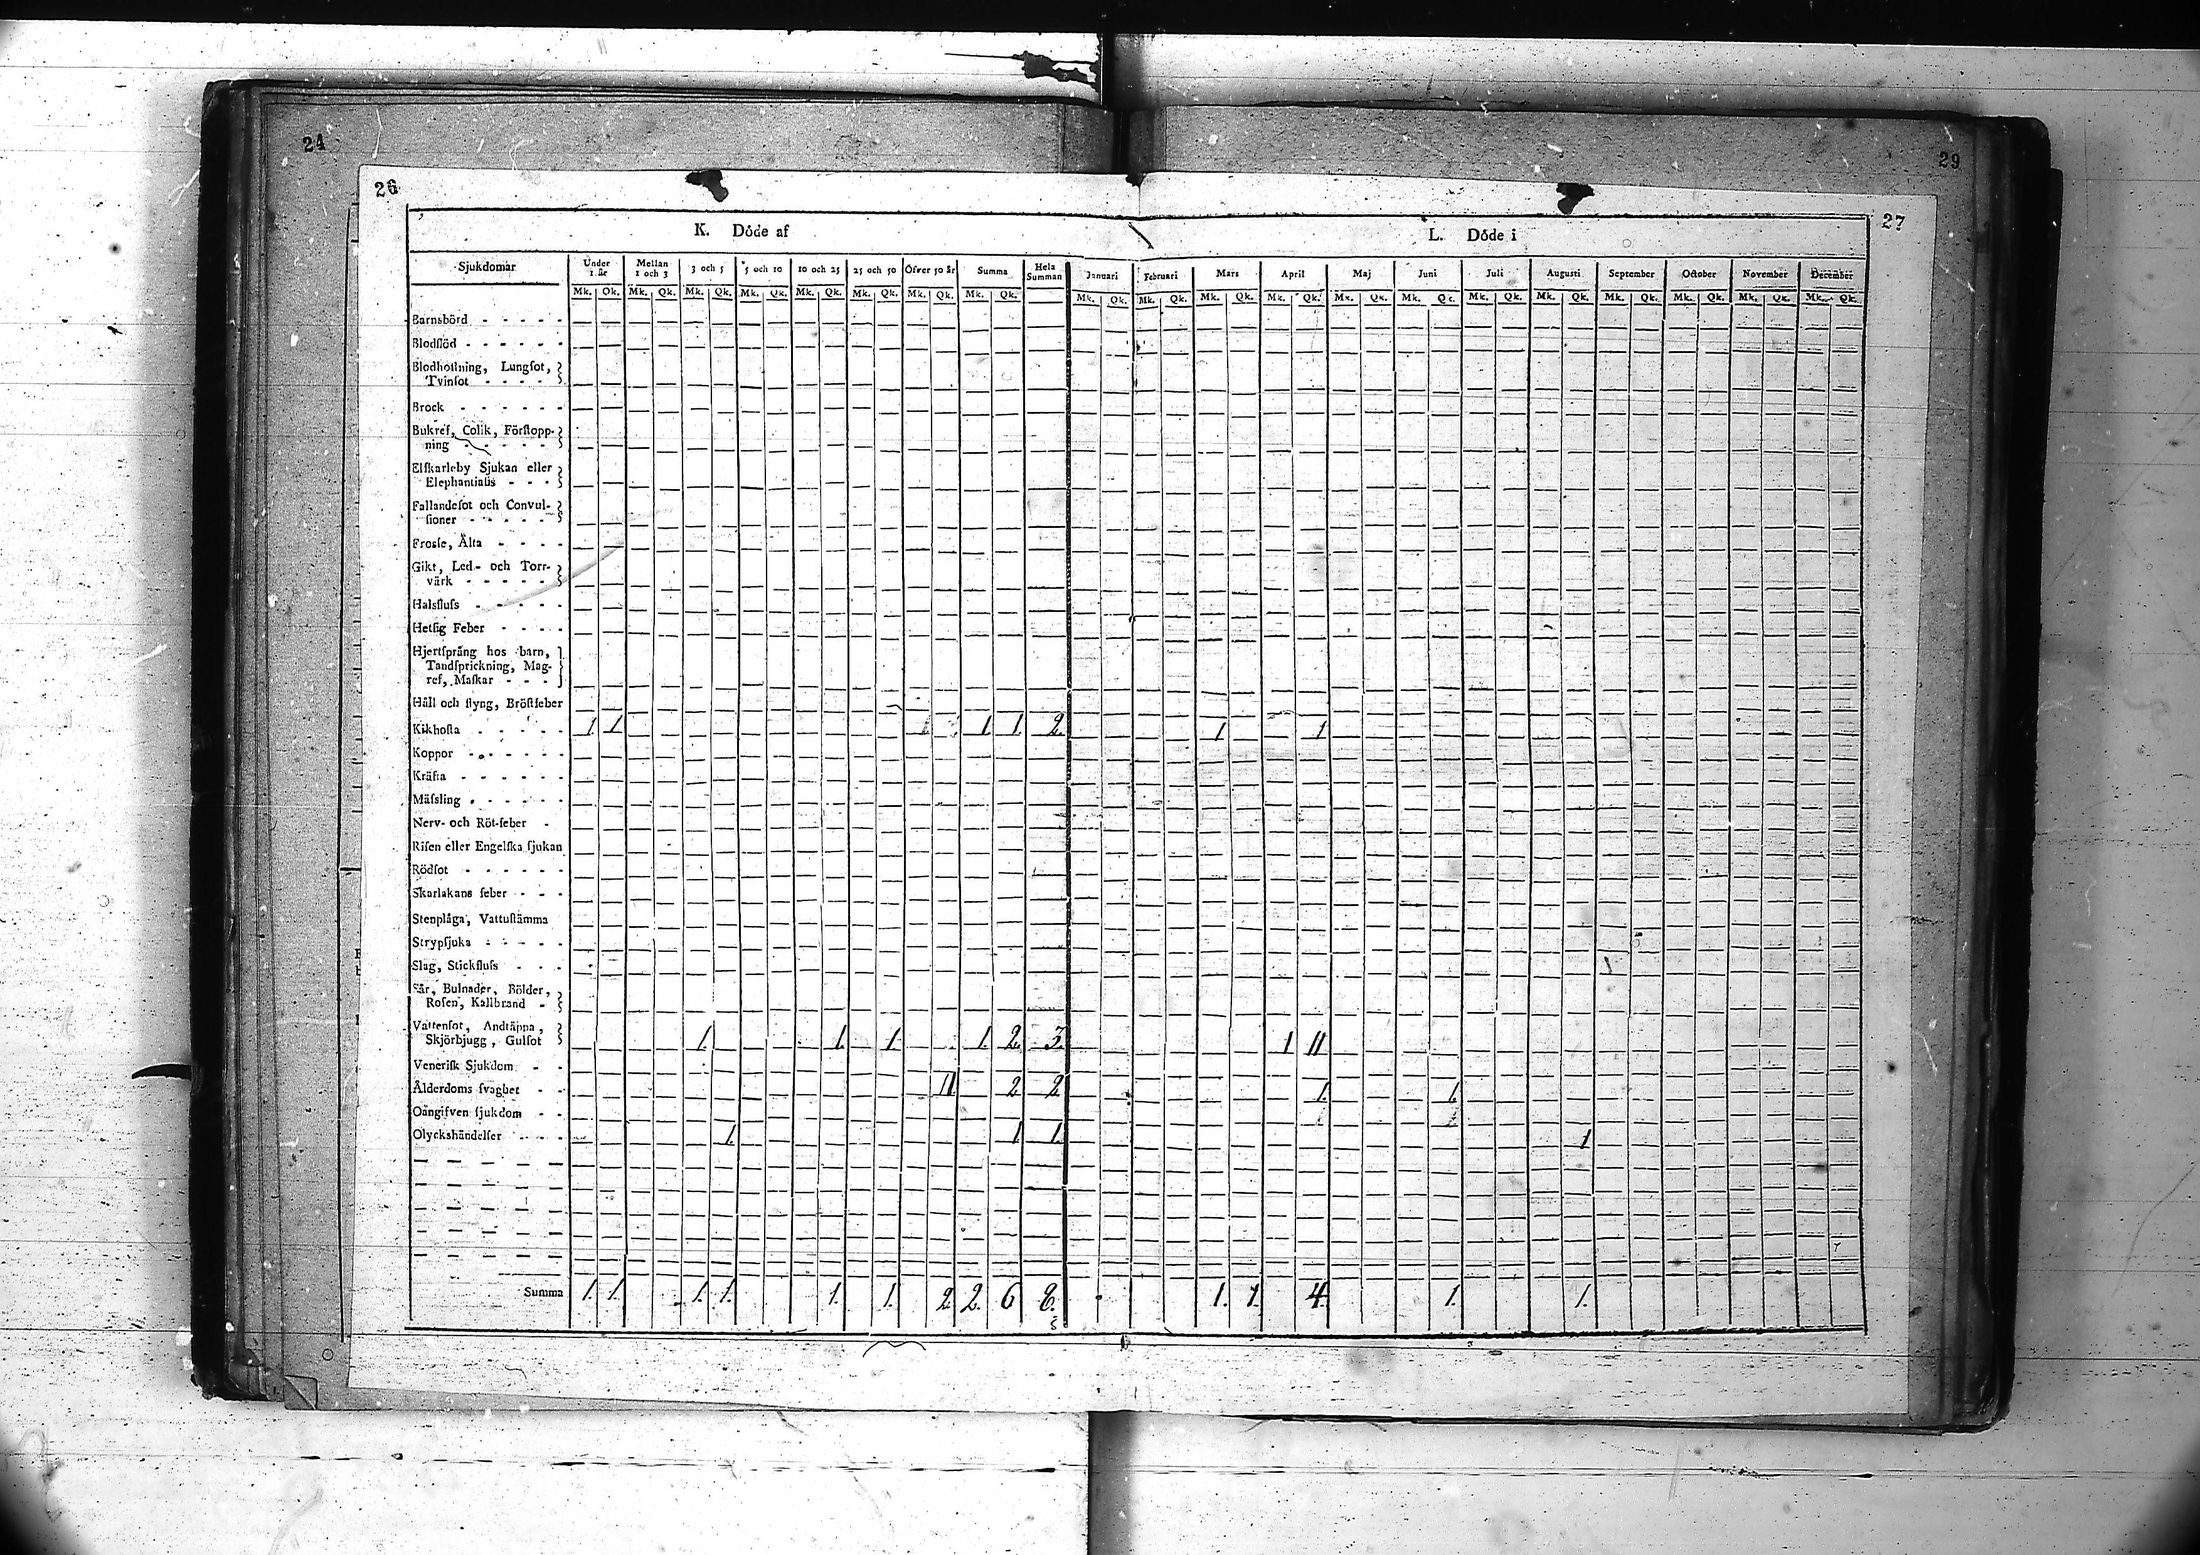 24
29
26
27
K. Döde af
L. Döde i
Sjukdomar Under 1 år Mellan 1 och 3 3 och 5 5 och 10 10 och 25 25 och 50 Öfver 50 år Summa Hela Summan Januari Februari Mars April Maj Juni Juli Augusti September October November December
Mk. Qk. Mk. Qk. Mk. Qk. Mk. Qk. Mk. Qk. Mk. Qk. Mk. Qk. Mk. Qk. Mk. Qk. Mk. Qk. Mk. Qk. Mk. Qk. Mk. Qk. Mk. Qk. Mk. Qk. Mk. Qk. Mk. Qk. Mk. Qk. Mk. Qk. Mk. Qk.
Barnsbörd
Blodflöd
Blodhoſtning, Lungſot,
Tvinſot
Brock
Bukref, Colik, Förſtopp-
ning
Elſkarleby Sjukan eller
Elephantiaſis
Fallandeſot och Convul-
ſioner
Froſſe, Älta
Gikt, Led- och Torr-
värk
Halsfluſs
Hetſig Feber
Hjertſprång hos barn,
Tandſprickning, Mag-
ref, Maſkar
Håll och ſtyng, Bröſtfeber
Kikhoſta 1. 1. 1. 1. 2. 1 1
Koppor
Kräfta
Mäſsling
Nerv- och Röt-feber
Riſen eller Engelſka ſjukan
Rödſot
Skarlakans feber
Stenplåga, Vattuſtämma
Strypſjuka
Slag, Stickfluſs
Sår, Bulnader, Bölder,
Roſen, Kallbrand
Vattenſot, Andtäppa,
Skjörbjugg, Gulſot 1. 1. 1. 1. 2. 3. 1 11
Veneriſk Sjukdom
Ålderdoms ſvaghet 11. 2 2 1. 1.
Oangifven ſjukdom
Olyckshändelſer 1. 1 1. 1
Summa 1. 1. 1. 1. 1. 1. 2 2. 6 8. 1. 1. 4. 1. 1.